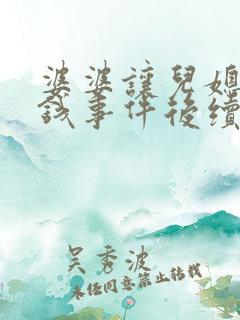 婆婆讓兒媳
錢事件後續
吳秀波
未經同意禁止轉載